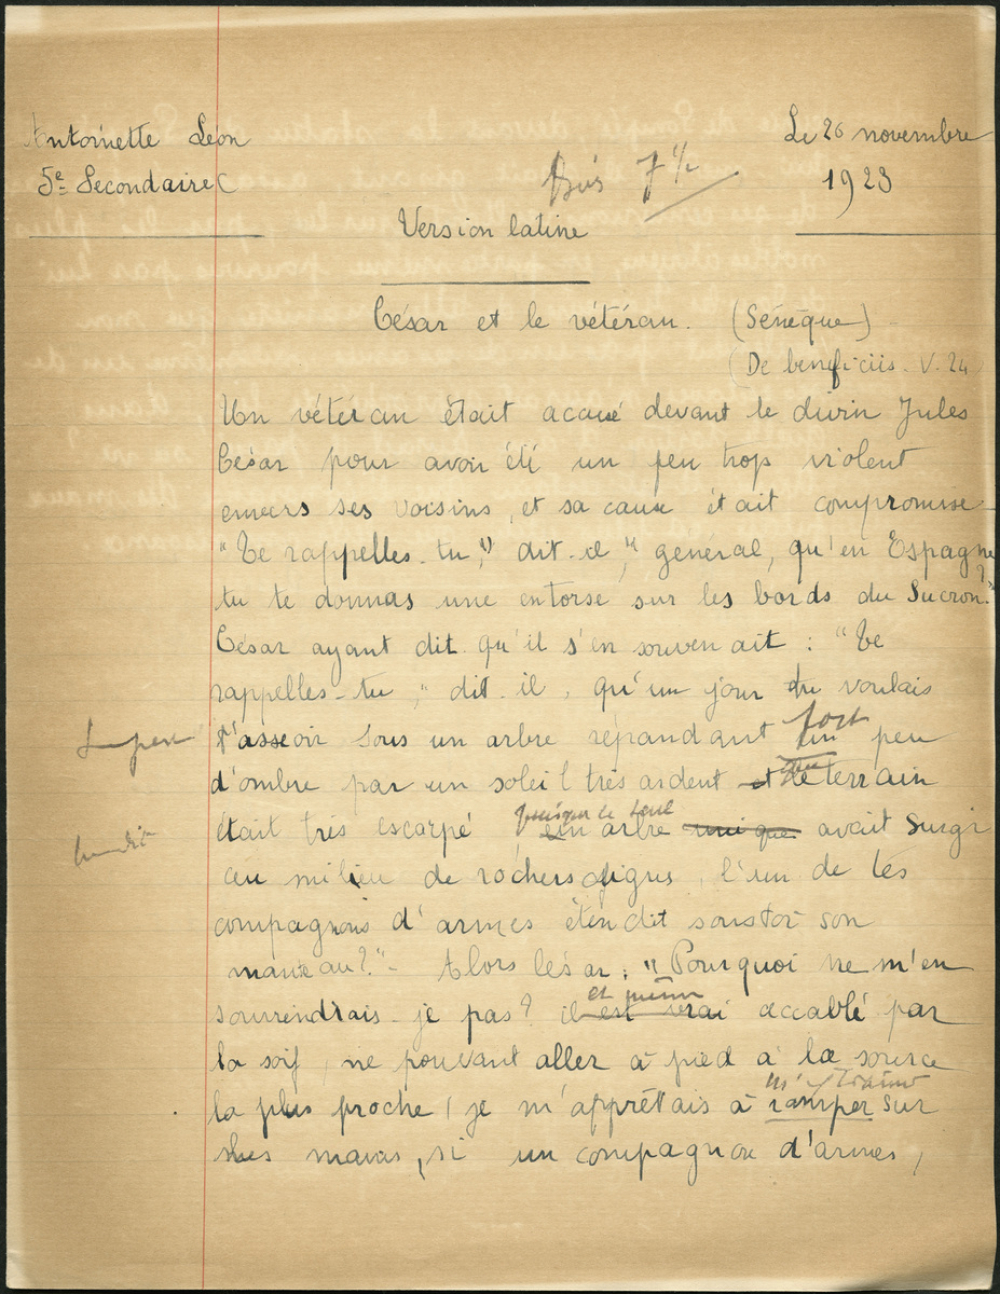 Antoinette Léon
Le 26 novembre
5e Secondaire C
1923
7 ½
Version latine
César et le vétéran. (Sénèque)
(De beneficiis. V. 24)
Un vétéran était accusé devant le divin Jules
César pour avoir été un peu trop violent
envers ses voisins, et sa cause était compromise
"Te rappelles-tu," dit-il, "général, qu'en Espagne
tu te donnas une entorse sur les bords du Sucron?"
César ayant dit qu'il s'en souvenait : "Te
rappelles-tu," dit-il, qu'un jour tu voulais
fort
t'asseoir sous un arbre répandant un peu
d'ombre par un soleil très ardent et le terrain
presque le seul
était très escarpé un arbre unique avait surgi
au milieu de rochers aigus, l'un de tes
compagnons d'armes étendit sous toi son
manteau?" - Alors César : "Pourquoi ne m'en
et même
souviendrais-je pas? il est vrai accablé par
la soif, ne pouvant aller à pied à la source
m' traîner
la plus proche, je m'apprêtais à ramper sur
les mains, si un compagnon d'armes,